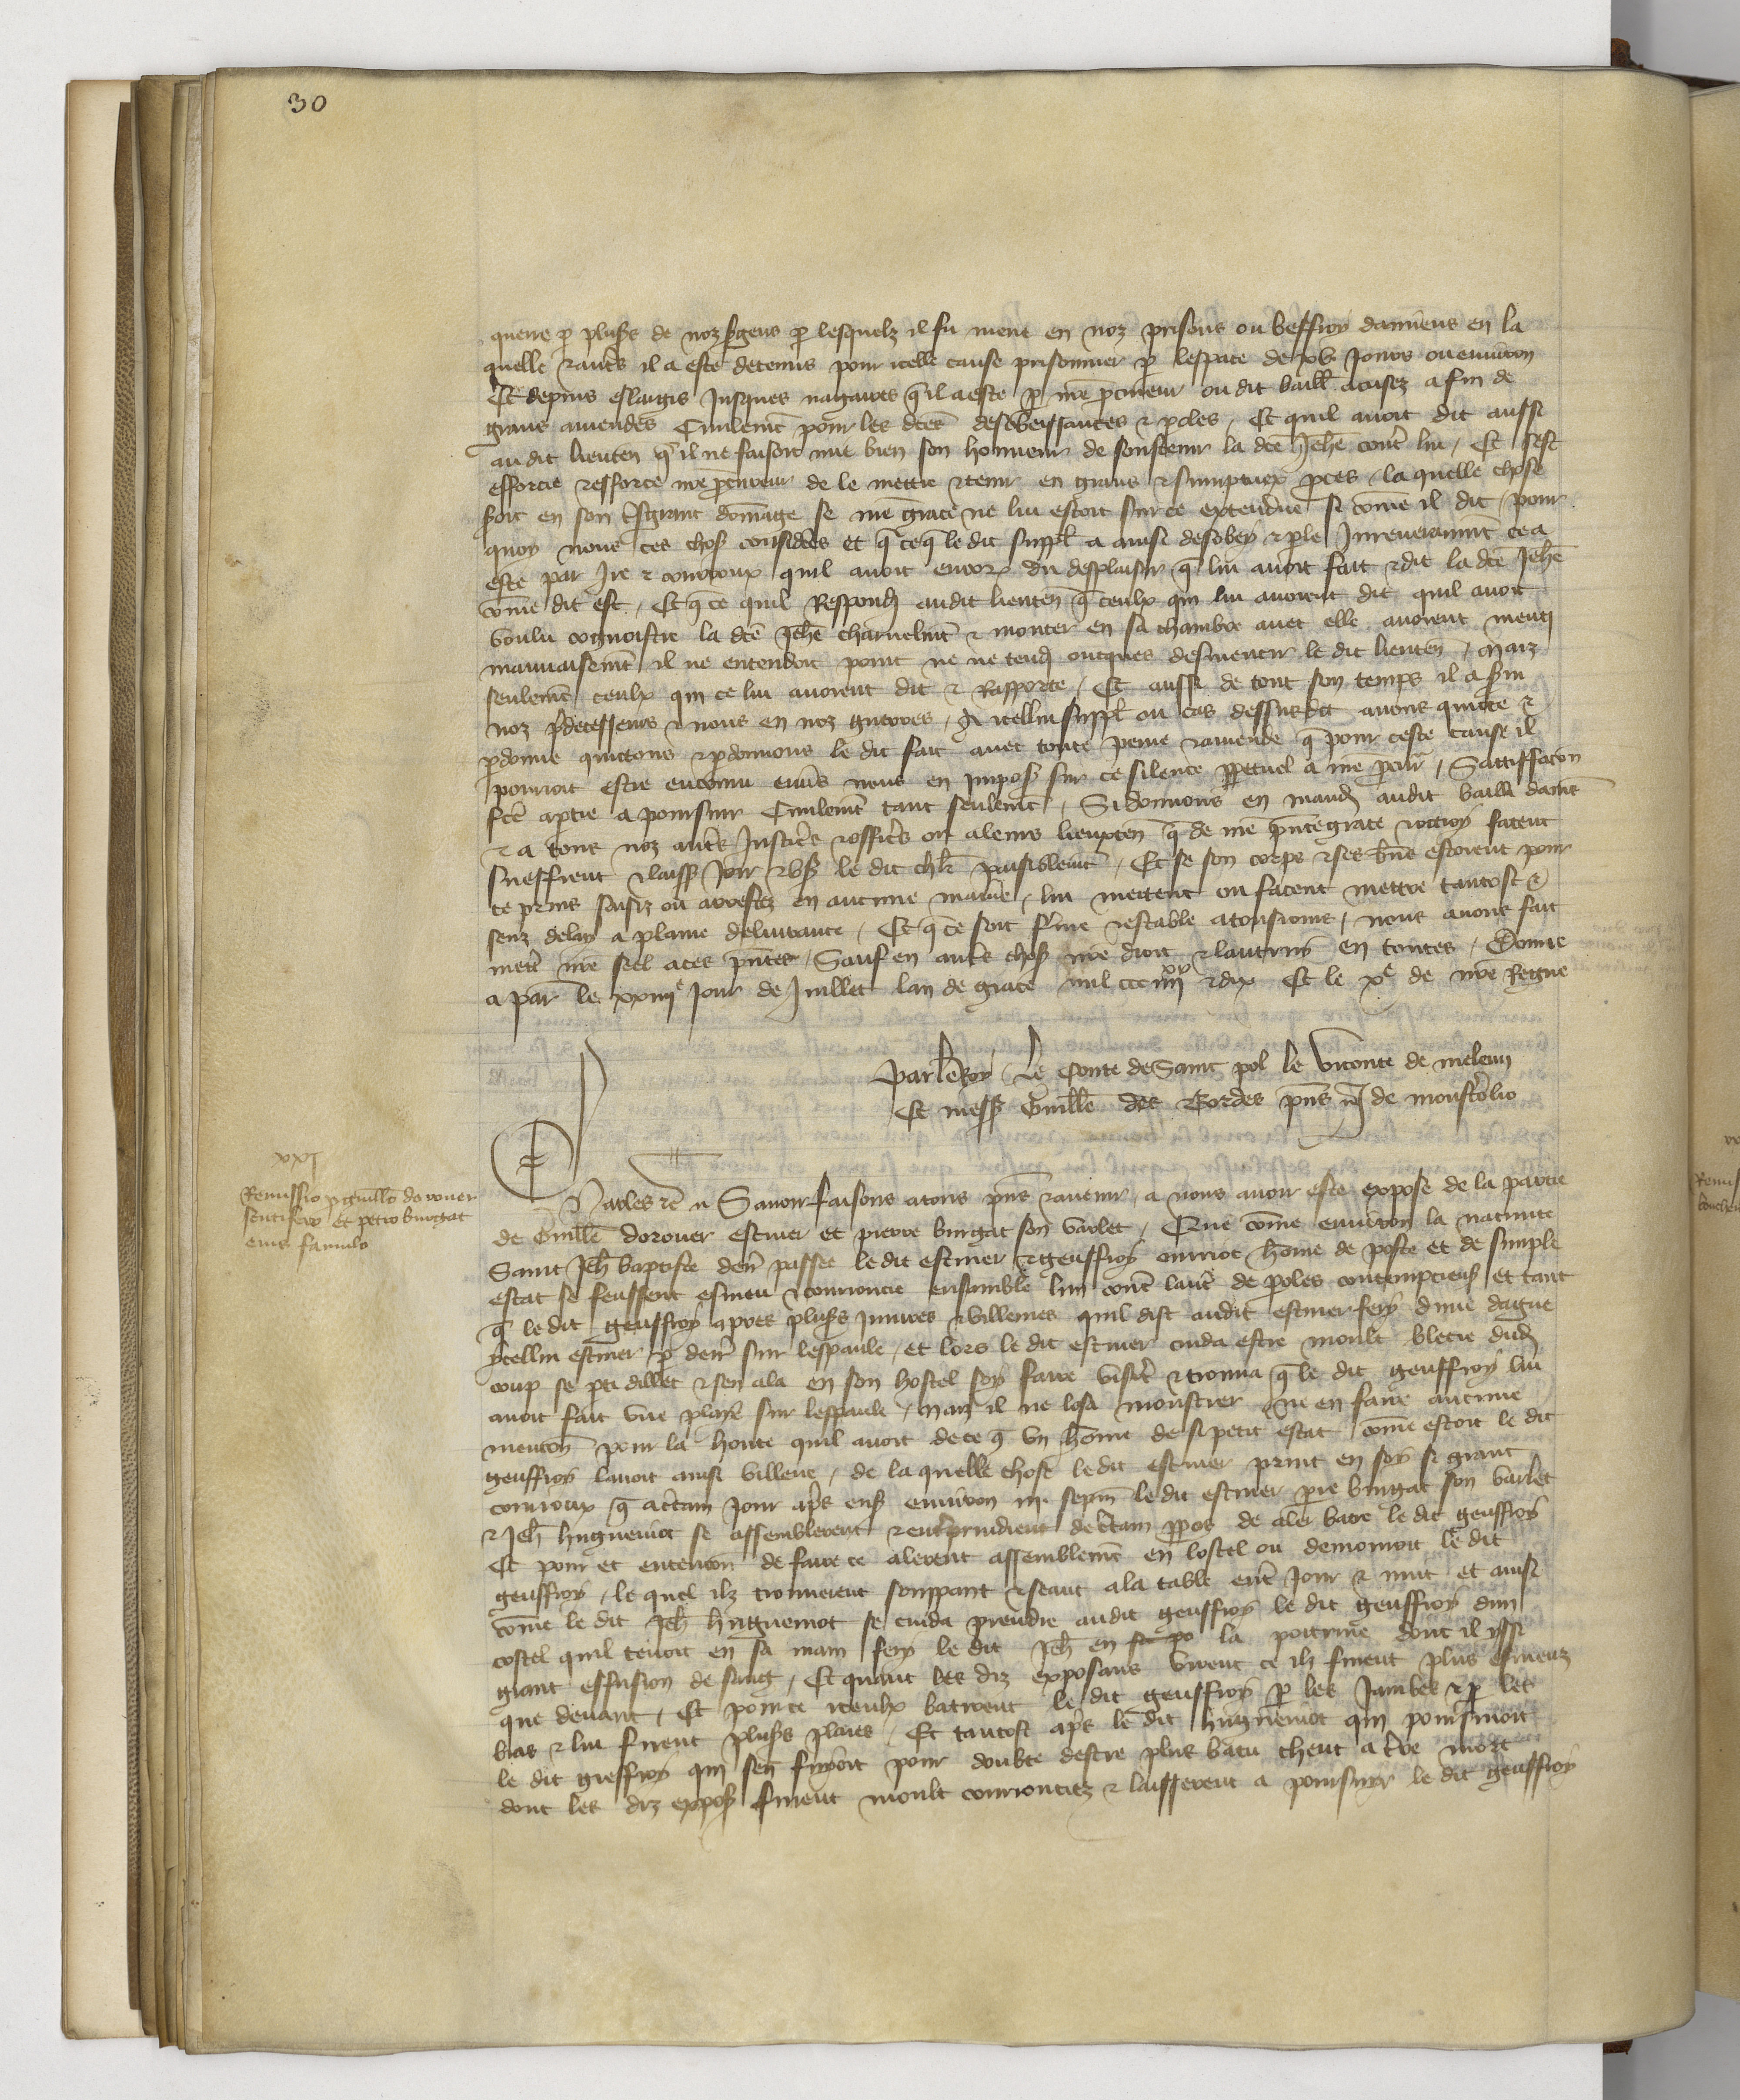 30
querre p plus's de noz s'gens p lesquelz il fu mene en noz prisons ou beffroy damiens en la
quelle & autres il a este detenus pour icelle cause prisonnier p lespace de xv jours ou environ
Et depuis eslargis Jusques nagaires q il a este p nre pcureur ou dit baill. acusez a fin de
grans amendes Civilemt pour les dces desobeissances & poles, Et quil avoit dit aussi
au dit lieuten q il ne faisoit mie bien son honneur de soustenir la dce Jehe contre lui, Et sest
efforcie & efforce nre pcureur de le mettre & tenir en grans & sumptueux pces, la quelle chose
soit en son tresgrant domage se nre grace ne lui estoit sur ce extendue si come il dit, pour
quoy nous ces choses considees et q ce q le dit suppl a ainsi desobey & ple Inreveramt ce a
este par Ire & courroux quil avoit encores du desplaisir q lui avoit fait & dit la dce Jehe
come dit est, Et q ce quil Respondi audit lieuten q ceulx qui lui avoient dit quil avoit
voulu cognoistre la dce Jehe charnelmt & monter en sa chambre avec elle avoient menti
mauvaisemt il ne entendoit point ne ne tendi oncques desmentir le dit lieuten, Maiz
seulemt ceulx qui ce lui avoient dit & Rapporte, Et aussi de tout son temps il a servi
noz pdecesseurs & nous en noz guerres, A icellui suppl ou cas dessusdit avons quicte &
pdonne quictons & pdonnons le dit fait avec toute peine & amende q pour ceste cause il
pourroit estre encouru envers nous en Imposs sur ce silence ppetuel a nre pcur, Satiffacon
fce a ptie a poursuir Civilemt tant seulemt, Si donnons en mand audit bailli damies
& a touz noz autres Justicrs & officrs ou a leurs lieuxten q de nre pnte grace & ottroy facent
sueffrent & laiss Joir & us le dit chlr paisiblemt, Et se son corps & ses biens estoient pour
ce prins saisiz ou arrestez en aucune manie, lui mettent ou facent mettre tantost &
senz delay a plaine delivrance, Et q ce soit ferme & estable a tousiours, nous avons fait
mett nre seel a ces pntes, Sauf en autres choses nre droit & lautruy en toutes, Donne
a par le xxiiije Jour de Juillet lan de grace mil ccc iiijxx & dix Et le xe de nre Regne
Par le Roy, Le Conte de Saint pol le Viconte de meleun
Et mess Guille des Bordes pns de monsterolio
xxj
Remissio p guillo dorouer
scutifero et petro burgat
eius famulo
Karles &c Savoir faisons a tous pns & avenir, a nous avoir este expose de la partie
de Guille dorouer escuier et pierre burgat son varlet, Que come environ la nativite
Saint Jeh baptiste deni passee le dit escuier & geuffroy ouirot home de poste et de simple
estat se feussent esmeu & courroucie ensemble lun contre lautre de poles contempcieus et tant
q le dit geuffroy apres pluss Iniures & villenies quil dist audit escuier fery dune dague
ycellui escuier p deri sur lespaule, et lors le dit escuier cuida estre moult blecie dudit
coup se pti dillec & sen ala en son hostel soy faire visiter & trouva q le dit geuffroy lui
avoit fait une plaie sur lespaule, Maiz il ne losa monstrer ne en faire aucune
mencon pour la honte quil avoit de ce q un home de si petit estat come estoit le dit
geuffroy lavoit ainsi villene, de la quelle chose le dit escuier print en soy si grant
courroux q a certain Jour apres ens environ iij sepm le dit escuier pierre burgat son varlet
& Jeh huguenot se assemblerent & entreprindrent de certain ppos de aler batre le dit geuffroy
Et pour et entencon de faire ce alerent assemblemt en lostel ou demouroit le dit
geuffroy, le quel ilz trouverent souppant & seant a la table entre Jour & nuit et ainsi
come le dit Jeh huguenot se cuida prendre audit geuffroy le dit geuffroy dun
costel quil tenoit en sa main fery le dit Jeh en la poitrine dont il yssi
grant effusion de sang, Et quant les diz exposans virent ce ilz furent plus esmeuz
que devant, Et pour ce iceulx batirent le dit geuffroy p les Jambes & p les
bras & lui firent pluss plaies, Et tantost apres le dit huguenot qui poursuioit
le dit gieffroy qui sen fuyoit pour doubte destre plus batu cheut a terre mort
dont les diz exposs furent moult courrouciez & laisserent a poursuir le dit geuffroy